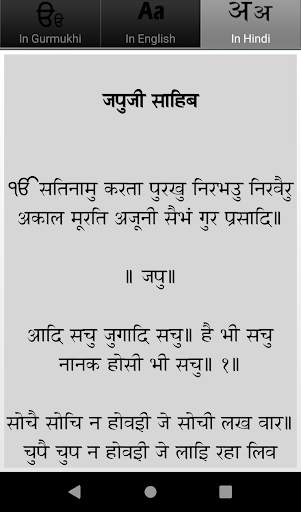 ੳੳ Aa अअ
In Gurmukhi In English In Hindi
जपुजी साहिब
ੴ सतिनामु करता पुरखु निरभउ निरवैरु
अकाल मूरति अजूनी सैभं गुर प्रसादि॥
॥ जपु॥
आदि सचु जुगादि सचु॥ है भी सचु
नानक होसी भी सचु॥ १॥
सोचै सोचि न होवई जे सोची लख वार॥
चुपै चुप न होवई जे लाइ रहा लिव